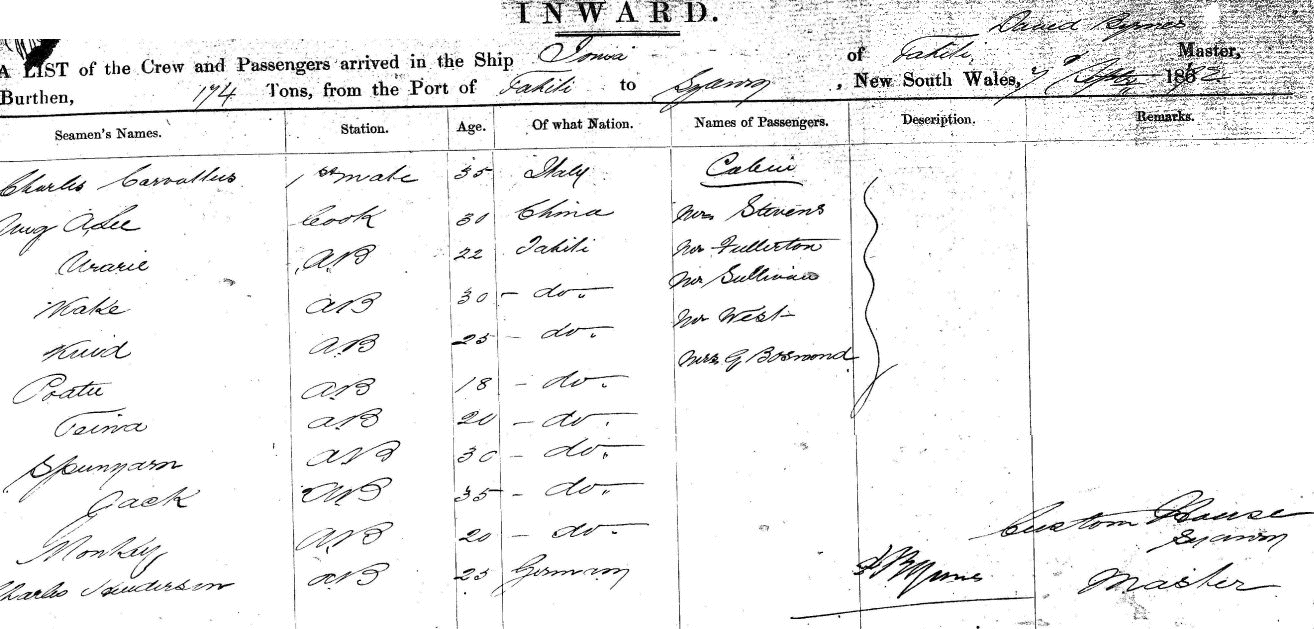 INWARD.
David Byrnes
A LIST of the Crew and Passengers arrived in the Ship Ionia of Tahiti, Master,
Burthen, 174 Tons, from the Port of Tahiti to Sydney, New South Wales, 7 Septr 1862
Seamen's Names. Station. Age. Of what Nation. Names of Passengers. Description. Remarks.
Charles Carvallus 1st mate 35 Italy Cabin
A Lee Cook 30 China Mrs Stevens
Urarie AB 22 Tahiti Mr Fullerton
Kake AB 30 - do. Mr Sullivan
AB 25 - do. Mr West
Mrs G Bosmond
Poatu AB 18 - do.
Teina AB 20 - do.
Spunyarn AB 30 - do.
Jack AB 35 - do.
Monkey AB 20 - do.
Charles Henderson AB 25 Germany
Custom House
Sydney
D Byrnes Master